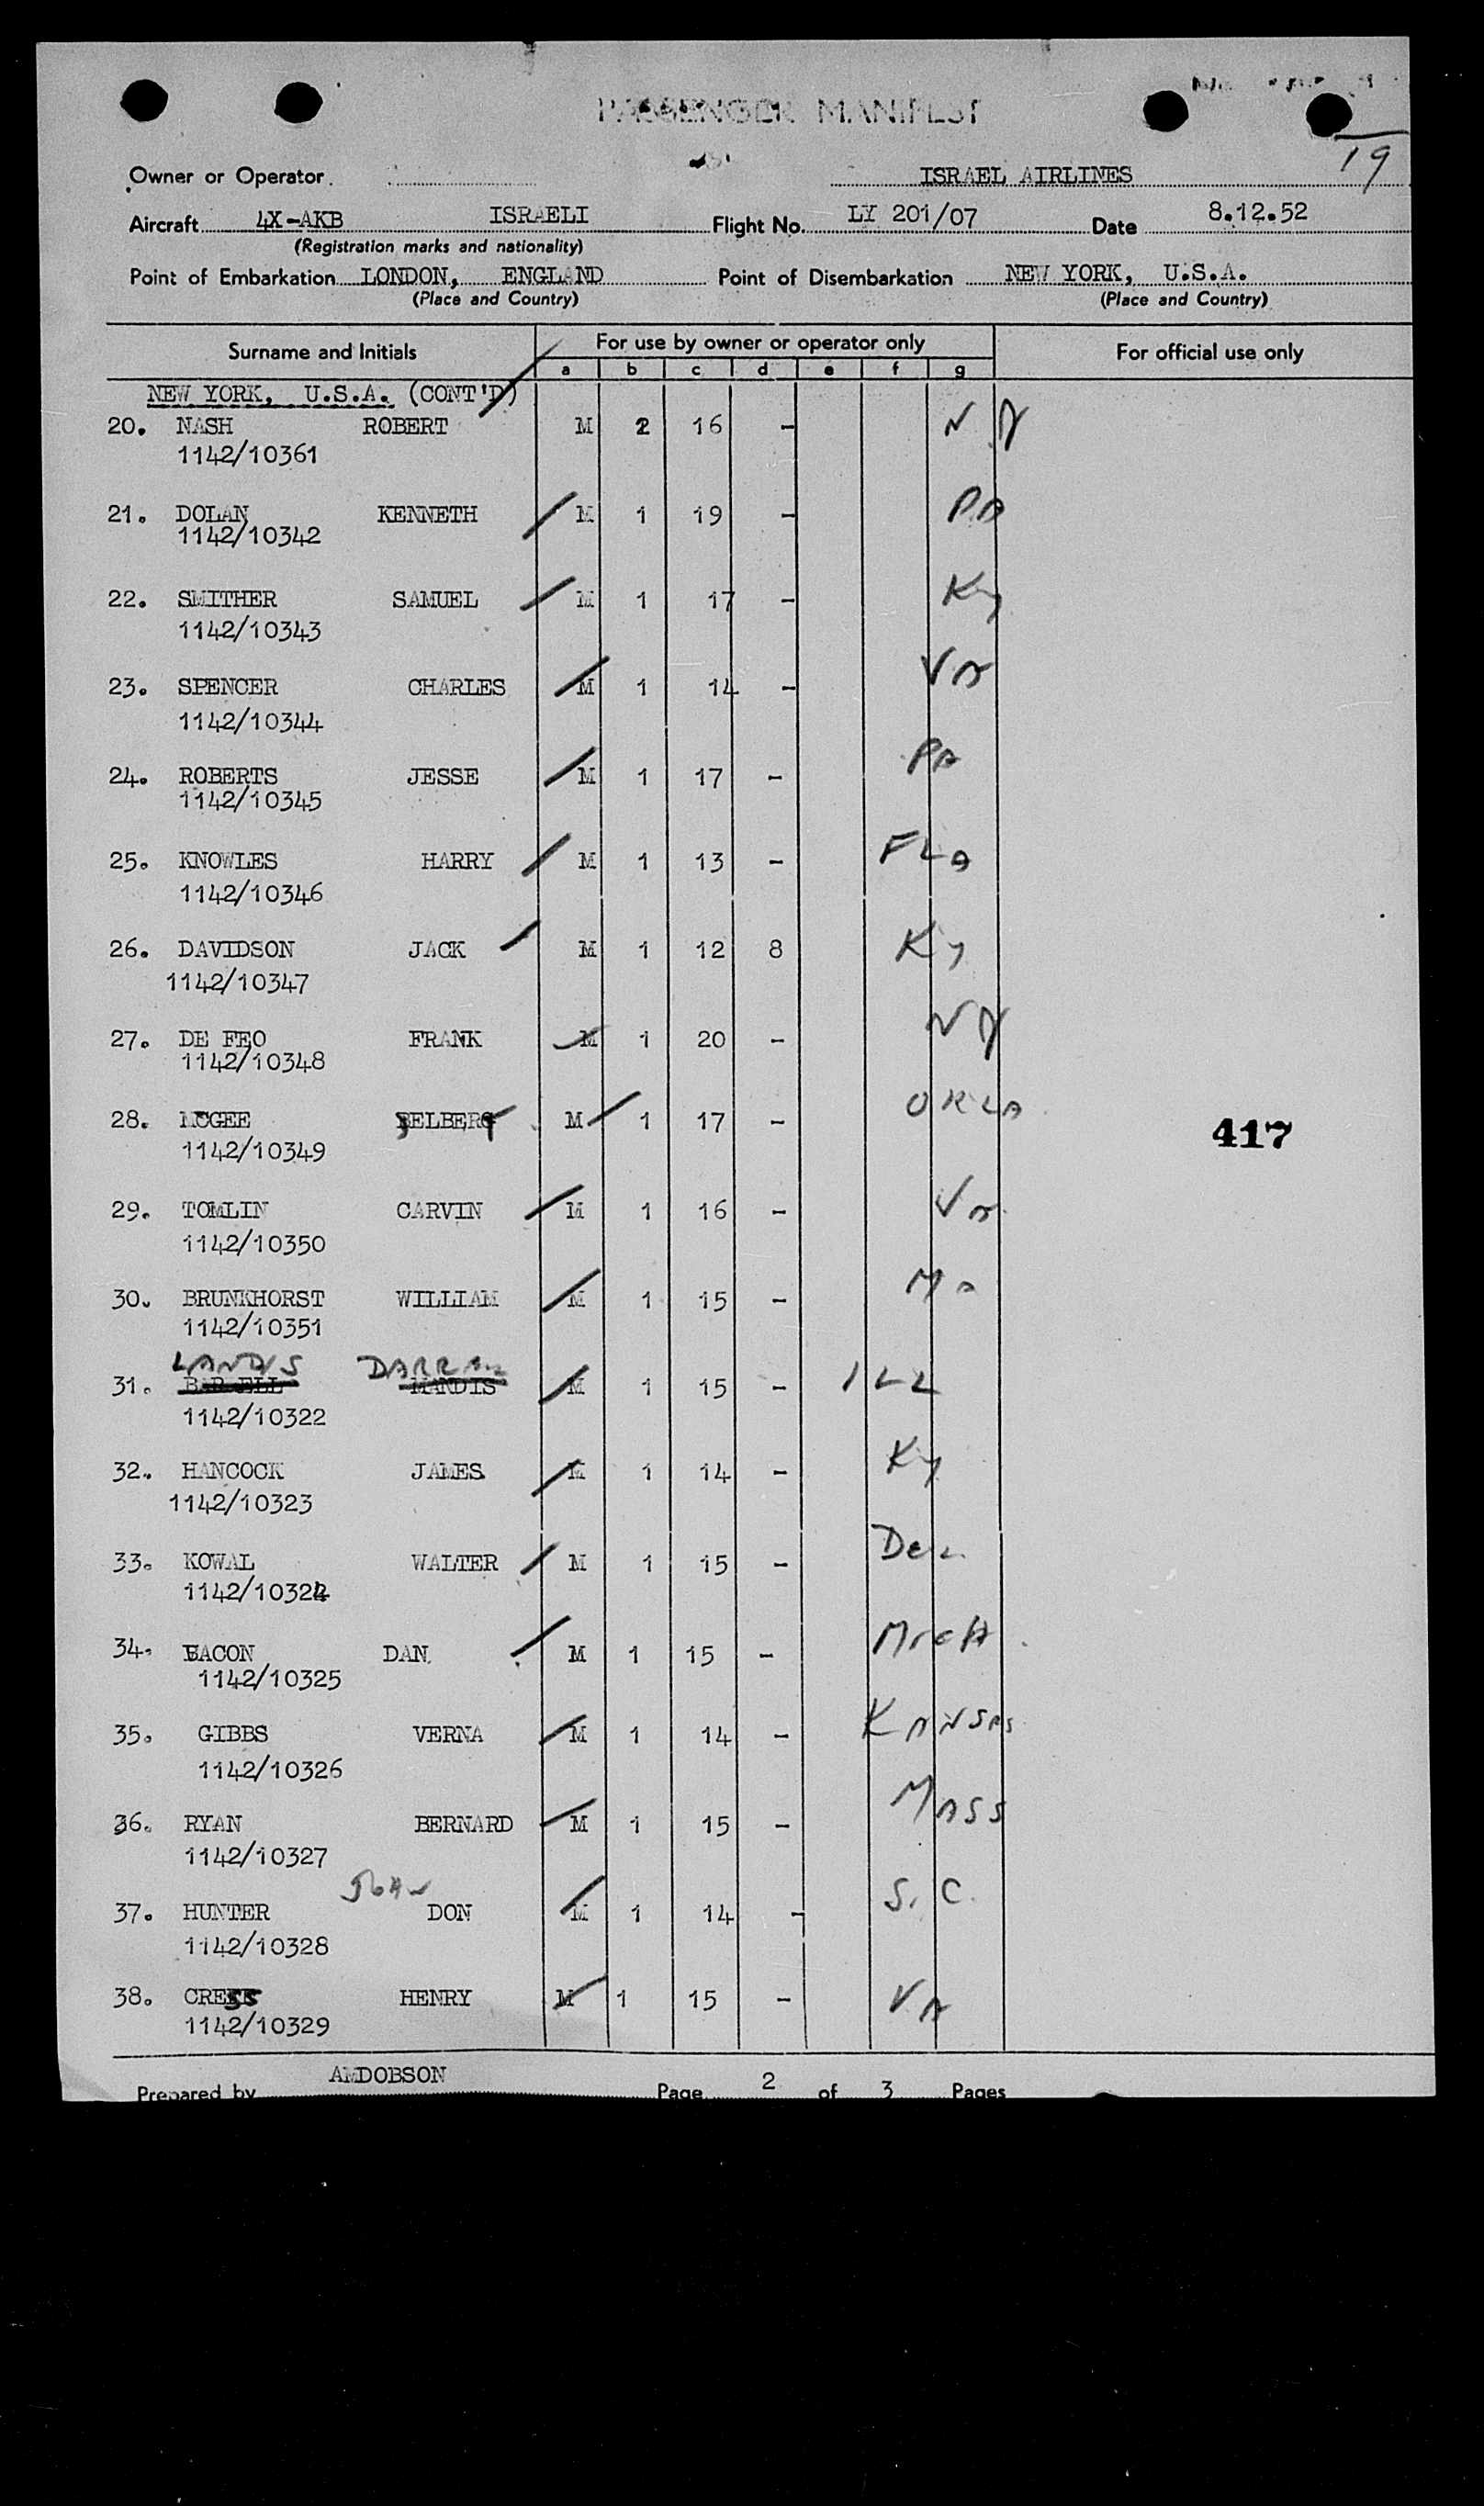 PASSENGER MANIFEST
19
Owner or Operator ISRAEL AIRLINES
Aircraft 4X-AKB ISRAELI Flight No. LY 201/07 Date 8.12.52
(Registration marks and nationality)
Point of Embarkation LONDON, ENGLAND Point of Disembarkation NEW YORK, U.S.A.
(Place and Country) (Place and Country)
Surname and Initials For use by owner or operator only For official use only
a b c d e f g
NEW YORK, U.S.A. (CONT'D)
20. NASH ROBERT M 2 16 - N.Y
1142/10361
21. DOLAN KENNETH M 1 19 - PA
1142/10342
22. SMITHER SAMUEL M 1 17 - Ky
1142/10343
23. SPENCER CHARLES M 1 14 - Va
1142/10344
24. ROBERTS JESSE M 1 17 - PA
1142/10345
25. KNOWLES HARRY M 1 13 - FLA
1142/10346
26. DAVIDSON JACK M 1 12 8 Ky
1142/10347
27. DE FEO FRANK M 1 20 - NY
1142/10348
28. MCGEE M 1 17 - OKLA
417
1142/10349
29. TOMLIN CARVIN M 1 16 - Va
1142/10350
30. BRUNKHORST WILLIAM M 1 15 - Ma
1142/10351
LANDIS
31. MANDIS M 1 15 - ILL
1142/10322
32. HANCOCK JAMES M 1 14 - Ky
1142/10323
33. KOWAL WALTER M 1 15 - Del
1142/10324
34. BACON DAN M 1 15 - MICH
1142/10325
35. GIBBS VERNA M 1 14 - KANSAS
1142/10326
36. RYAN BERNARD M 1 15 - MASS
1142/10327
37. HUNTER DON M 1 14 - S.C.
1142/10328
38. CRESS HENRY M 1 15 - Va
1142/10329
Prepared by AMDOBSON Page 2 of 3 Pages